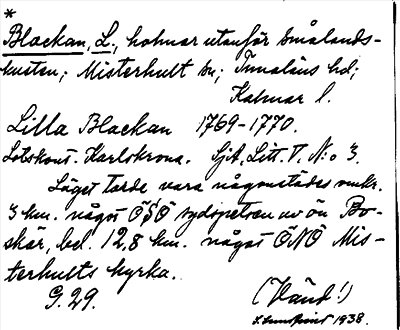 *
Blackan, L., holmar utanför Smålands-
kusten; Misterhult sn; Tunaläns hd;
Kalmar l.
Lilla Blackan 1769-1770.
Lotskont. Karlskrona. SjA, Litt. V. N:o 3.
Läget torde vara någonstädes omkr.
3 km. något ÖSÖ sydspetsen av ön Bo-
skär, bel. 12,8 km. något ÖNÖ Mis-
terhults kyrka.
G. 29. (Vänd!)
1938.